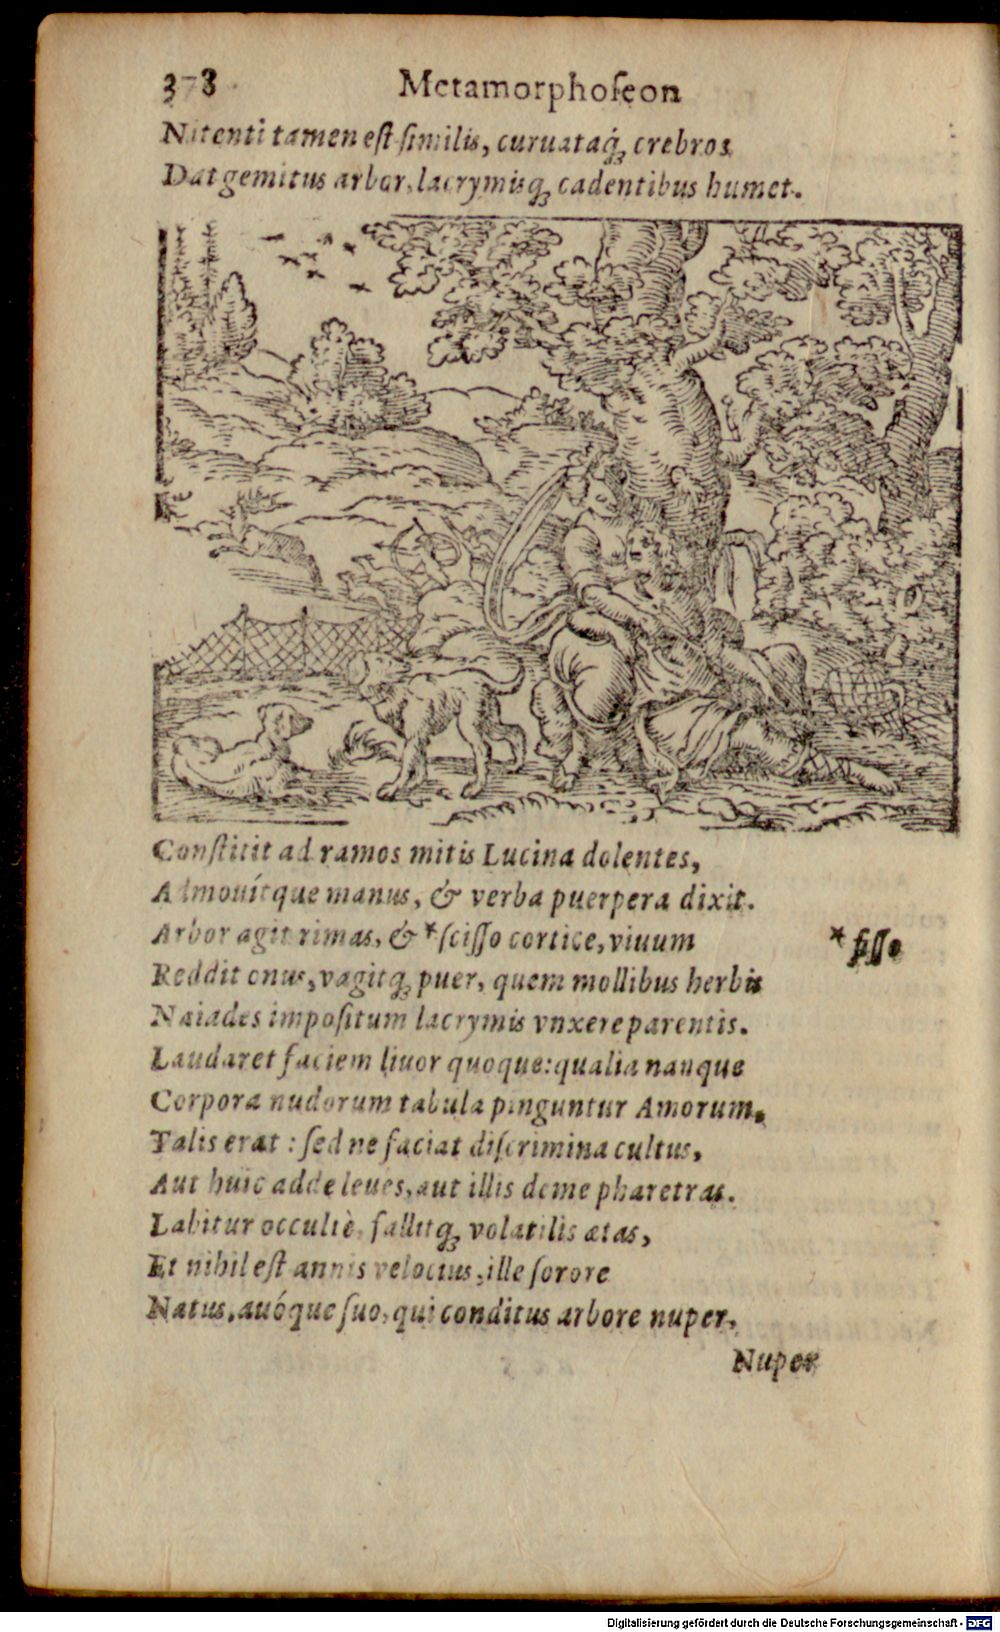 378 Metamorphoſeon
Nitenti tamen eſt ſimilis, curuataq́ꝫ crebros
Dat gemitus arbor, lacrymisqꝫ cadentibus humet.
Conſtitit ad ramos mitis Lucina dolentes,
Admouítque manus, & verba puerpera dixit.
Arbor agit rimas, & *ſciſſo cortice, viuum
* fiſſo
Reddit onus, vagitqꝫ puer, quem mollibus herbis
Naiades impoſitum lacrymis vnxere parentis.
Laudaret faciem liuor quoque: qualia nanque
Corpora nudorum tabula pinguntur Amorum,
Talis erat: ſed ne faciat diſcrimina cultus,
Aut huic adde leues, aut illis deme pharetras.
Labitur occultè, fallitqꝫ volatilis ætas,
Et nihil eſt annis velocius, ille ſorore
Natus, auóque ſuo, qui conditus arbore nuper,
Nuper
Digitalisierung gefördert durch die Deutsche Forschungsgemeinschaft - DFG